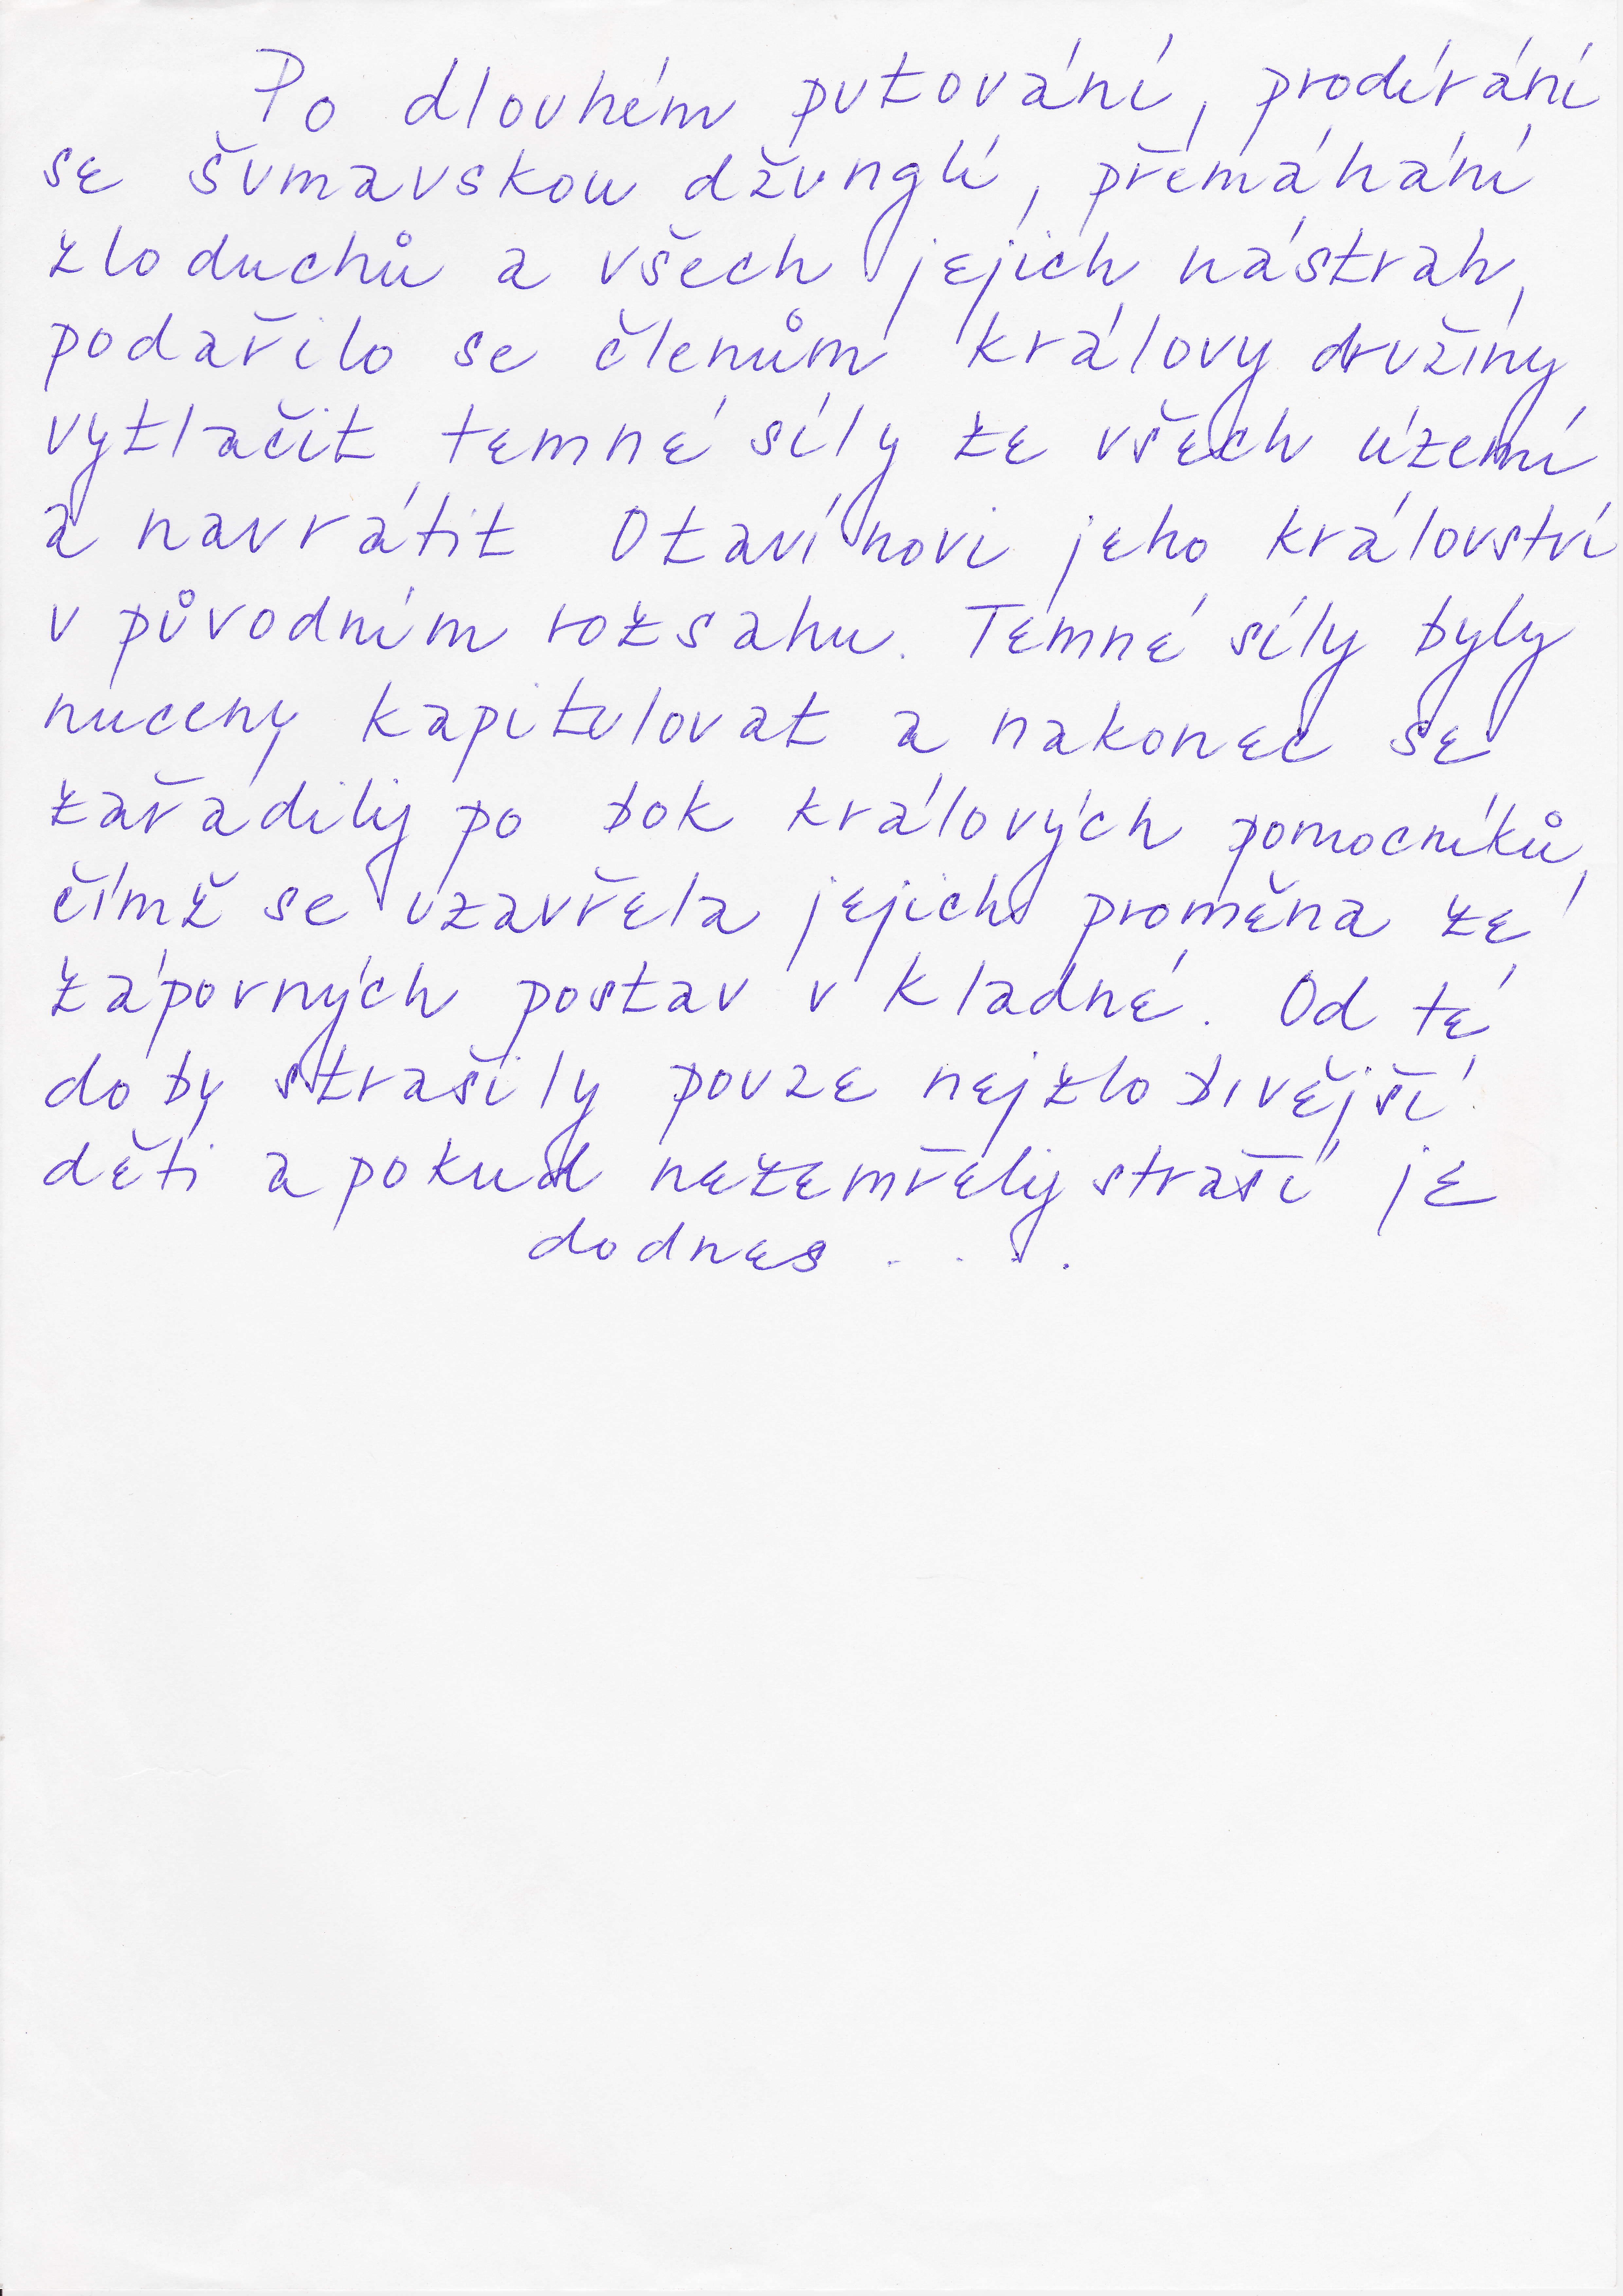 Po dlouhém putování, prodírání
se šumavskou džunglí, přemáhání
zloduchů a všech jejich nástrah,
podařilo se členům královy družiny
vytlačit temné síly ze všech území
a navrátit Otavínovi jeho království
v původním rozsahu. Temné síly byly
nuceny kapitulovat a nakonec se
zařadily po bok králových pomocníků,
čímž se uzavřela jejich proměna ze
záporných postav v kladné. Od té
doby strašily pouze nejzlobivější
děti a pokud nezemřely straší je
dodnes . . . .